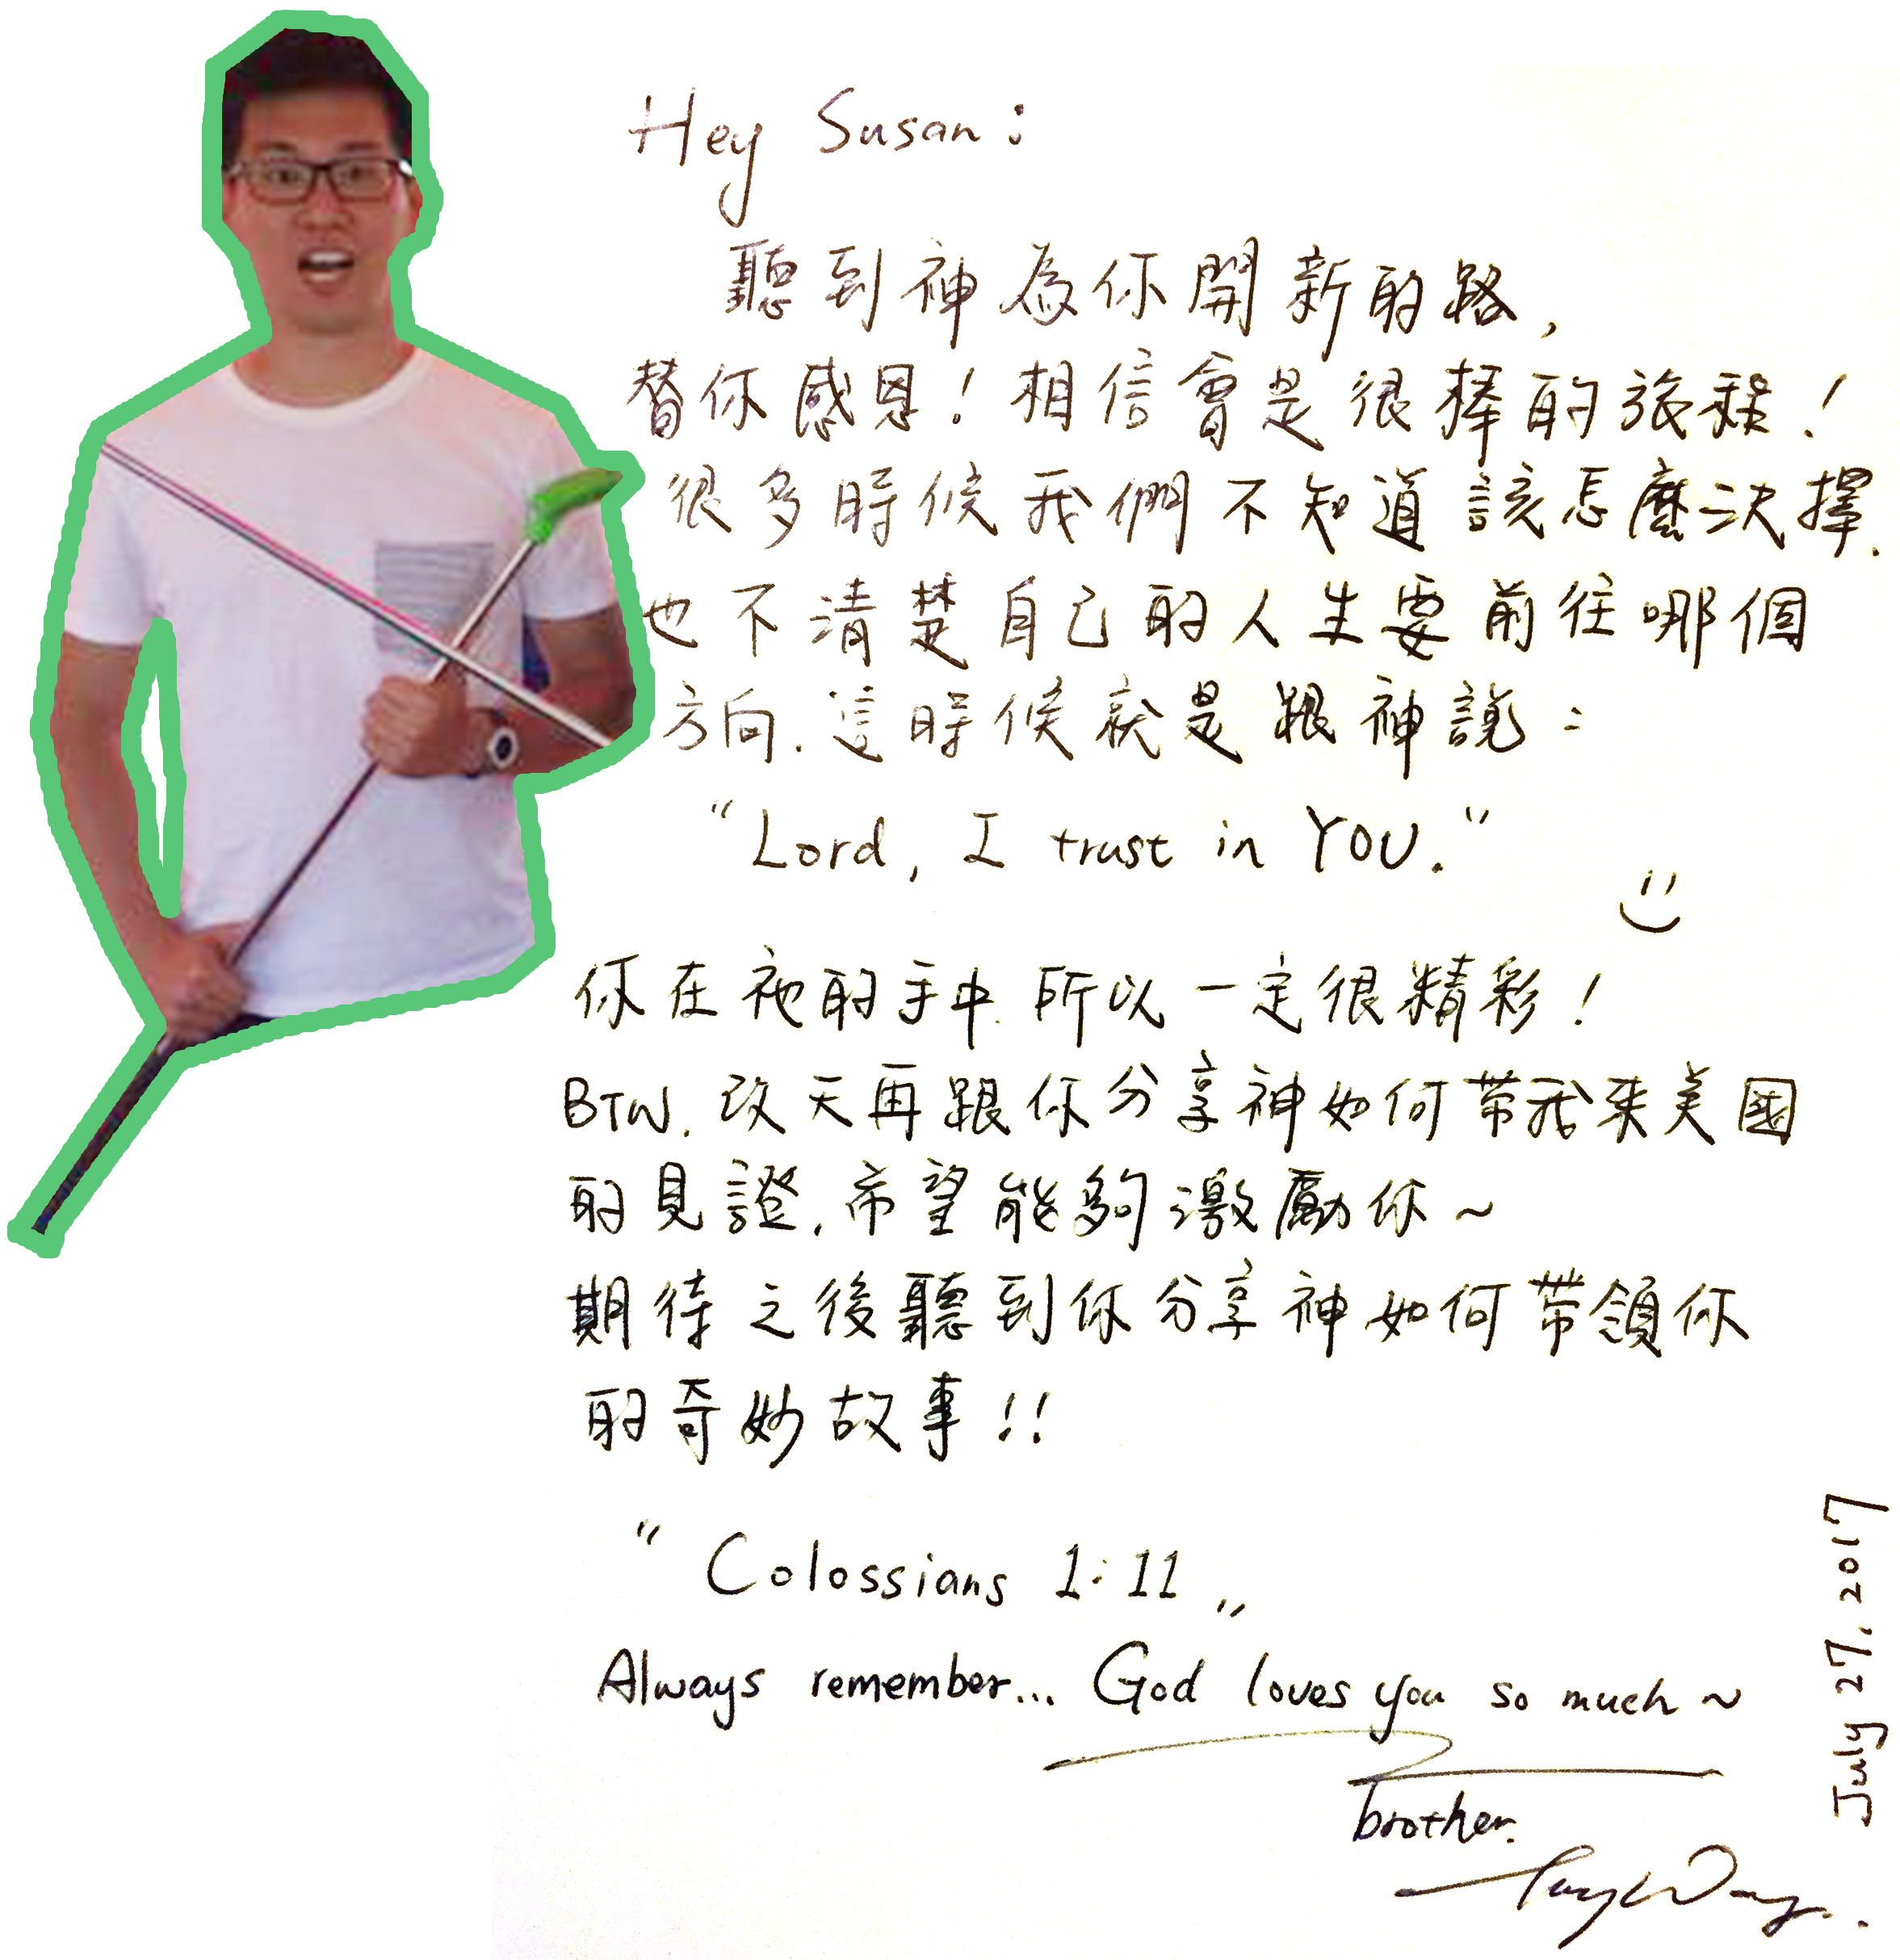 Hey Susan:
聽到神為你開新的路,
替你感恩! 相信會是很棒的旅程!
很多時候我們不知道該怎麼決擇.
也不清楚自己的人生要前往哪個
方向. 這時候就是跟神說:
"Lord, I trust in YOU."
你在祂的手中. 所以一定很精彩!
BTW. 改天再跟你分享神如何帶我來美國
的見證. 希望能夠激勵你~
期待之後聽到你分享神如何帶領你
的奇妙故事!!
"Colossians 1:11"
Always remember... God loves you so much ~
brother.
July 27, 2017